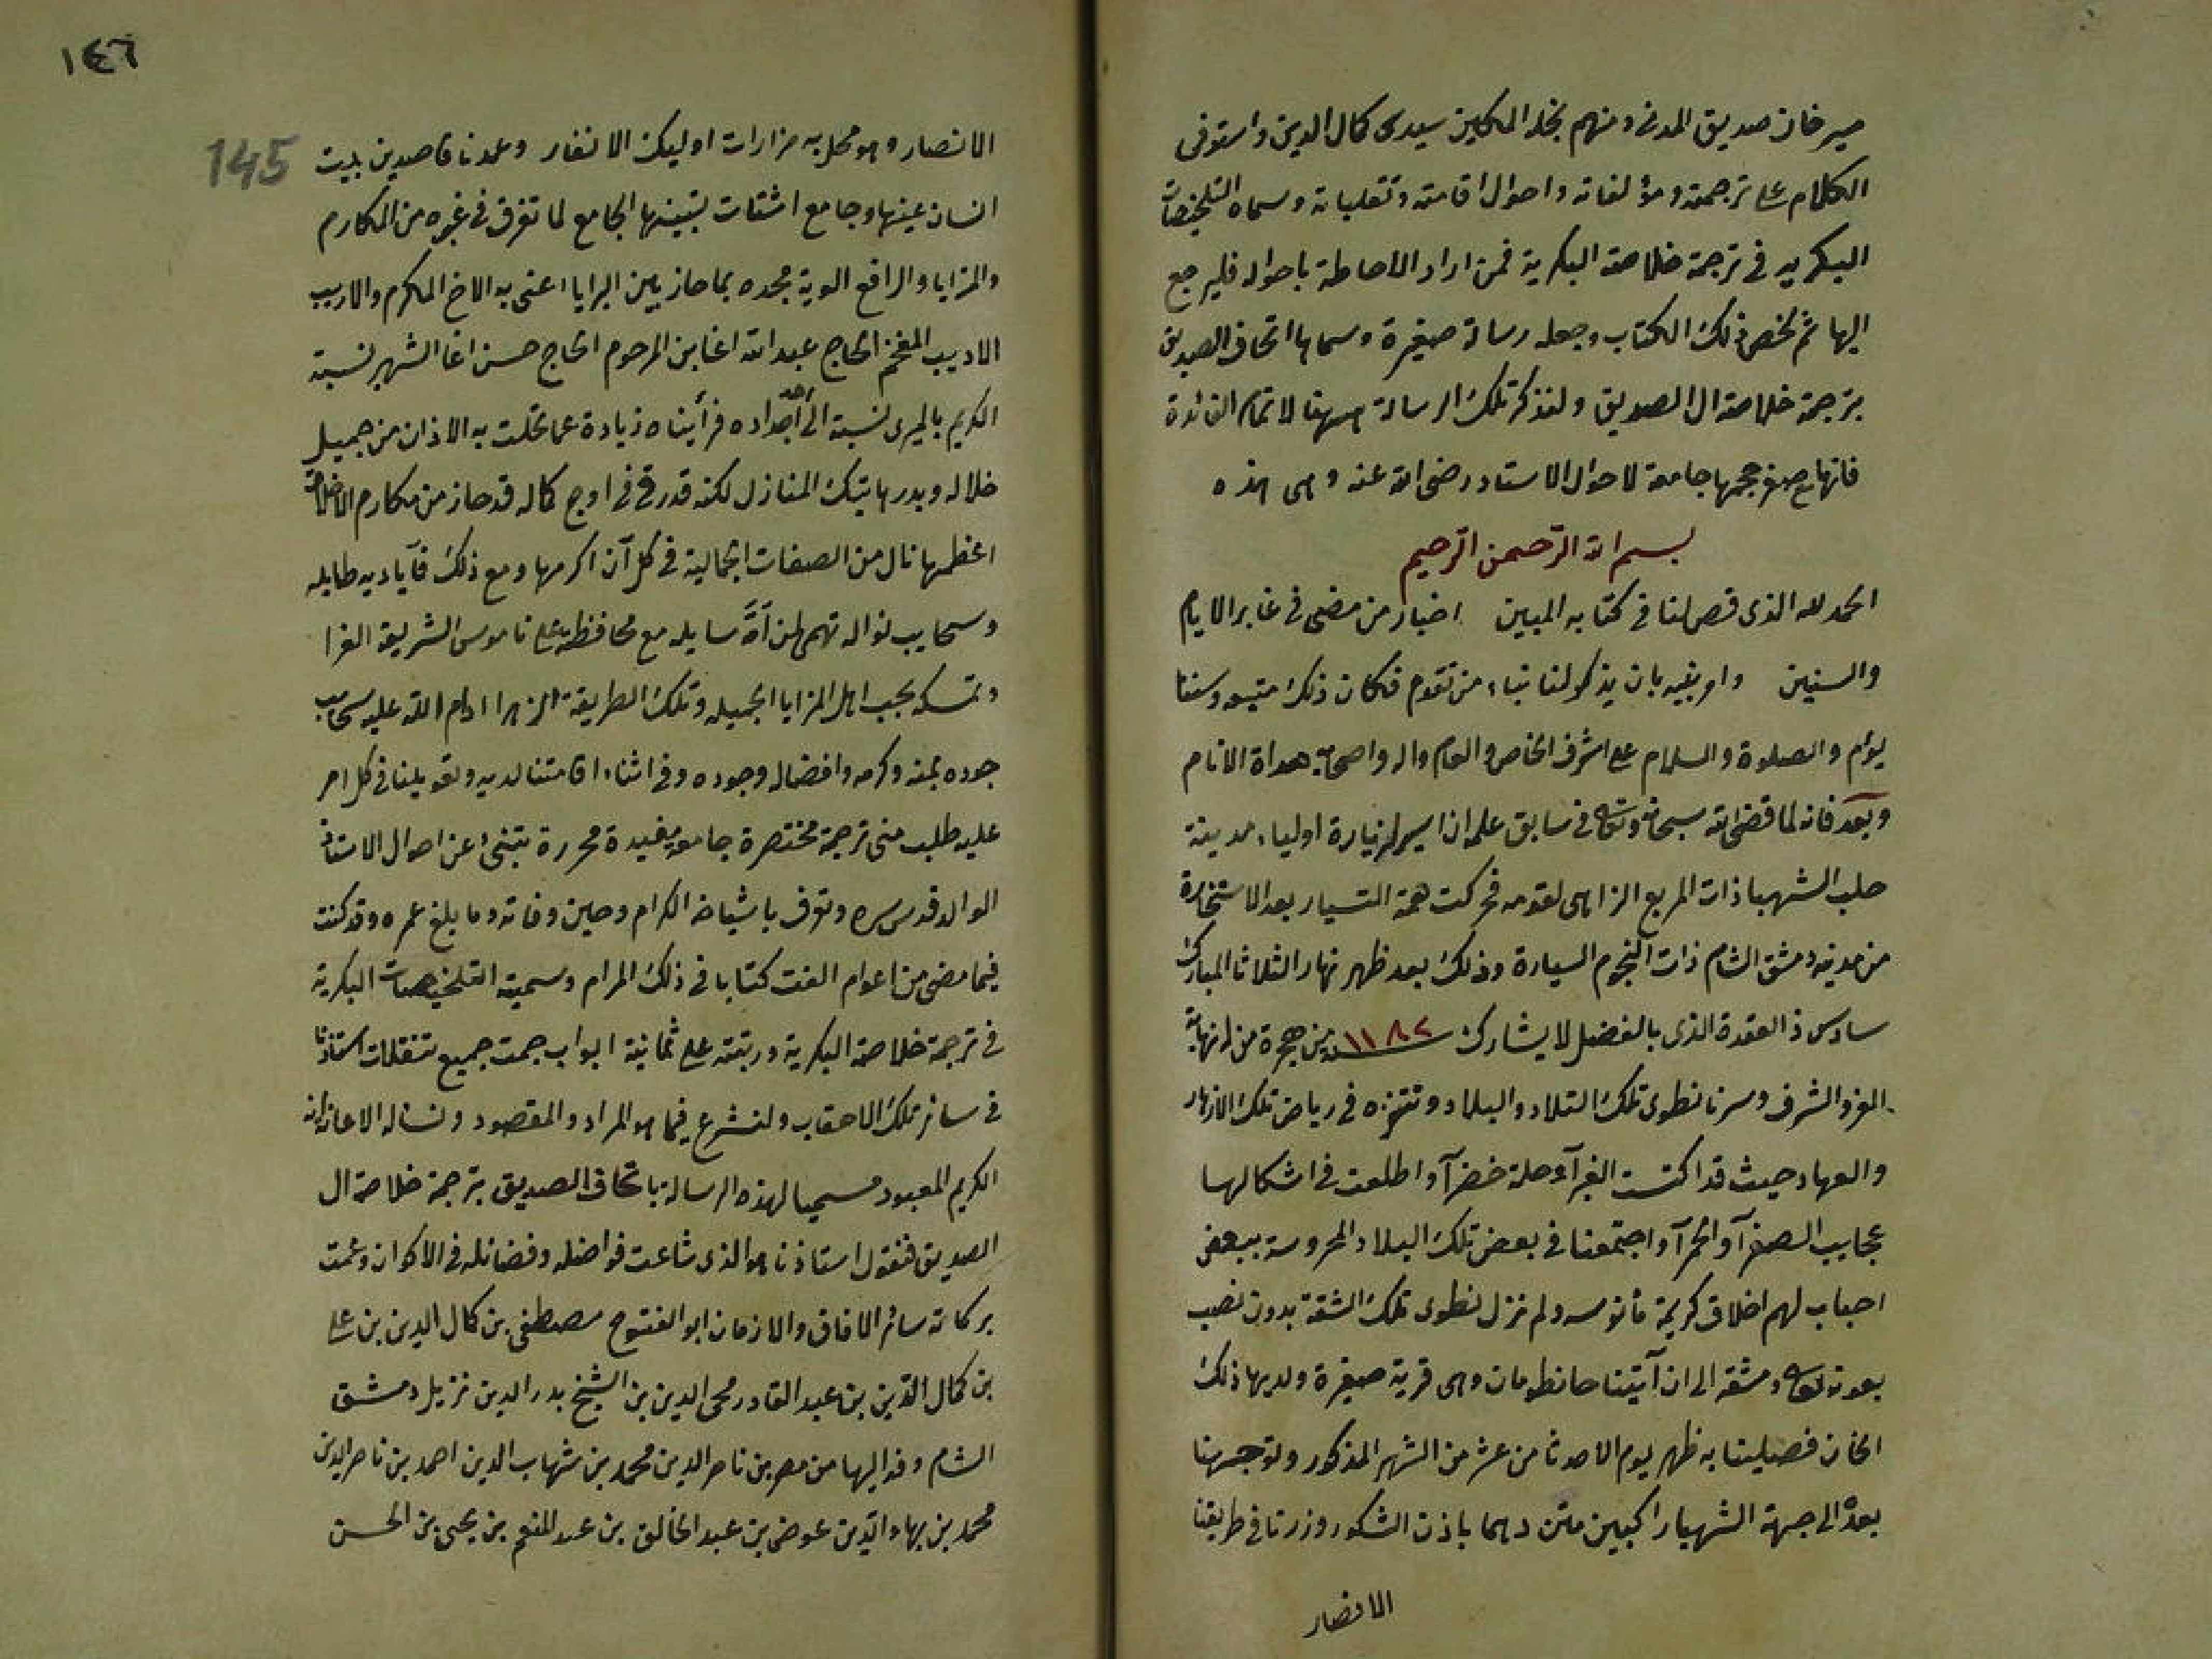 ميرخان صديق المدنى ومنهم نجله المكين سيدى كمال الدين واستوفى
الكلام على ترجمته ومؤلفاته واحوال اقامته وتقلباته وسماه التلخيصات
البكريه فى ترجمة خلاصة البكرية فمن اراد الاحاطة باحواله فليرجع
اليها ثم لخص ذلك الكتاب وجعله رسالة صغيرة وسماها اتحاف الصديق
بترجمة خلاصة ال الصديق ولنذكر تلك الرسالة ههنا لاتمام الفائدة
فانها مع صغر حجمها جامعة لاحوال الاستاد رضى الله عنه وهى هذه
بسم الله الرحمن الرحيم
الحمد لله الذى قص لنا فى كتابه المبين اخبار من مضى فى غابر الايام
والسنين وامر نبيه بان يذكر لنا نباء من تقدم فكان ذلك متبعه وسننا
يوام والصلوة والسلام على اشرف الخاص والعام واله واصحابه هداة الانام
وبعد فانه لما قضى الله سبحانه وتعالى فى سابق علمه ان اسير لزيارة اولياء مدينة
حلب الشهبا ذات المربع الزاهى لقومه فحركت همة التسيار بعد الاستخارة
من مدينة دمشق الشام ذات النجوم السيارة وذلك بعد ظهر نهار الثلاثا المبارك
سادس ذالعقدة الذى بالفضل لا يشارك سنة ١١٨٢ من هجرة من له نهاية
العز والشرف وسرنا نطوى تلك التلاد والبلاد ونتنزه فى رياض تلك الازهار
والعهاد حيث قد اكتست الغبرآء حلة خضرآ واطلعت فى اشكالها
عجايب الصفرآ والحمرآ واجتمعنا فى بعض تلك البلاد المحروسة ببعض
احباب لهم اخلاق كريمة مأنوسه ولم نزل نطوى تلك الشقة بدون نصب
بعونه تعالى ومشقه الى ان آتينا حانطومان وهى قرية صغيرة ولديها ذلك
الخان فصلينا به ظهر يوم الاحد ثامن عشر من الشهر المذكور وتوجهنا
بعده الى جهة الشهبا راكبين متن دهما باذن الشكور وزرنا فى طريقنا
الانصار
١٤٦
145
الانصار وهو محل به مزارات اوليك الانفار وعمدنا قاصدين بيت
انسان عينها وجامع اشتات بينها الجامع لما تفرق فى غيره من المكارم
والمزايا والرافع الوية مجده بما حاز بين البرايا اعنى به الاخ المكرم والاريب
الاديب المفخم الحاج عبد الله اغا بن المرحوم الحاج حسن اغا الشهير نسبة
الكريم بالميرى نسبة الى احد اجداده فرأيناه زيادة عما تحلت به الاذان من جميل
خلاله وبدر هاتيك المنازل لكنه قد رقى فى اوج كماله قد حاز من مكارم الاخلاق
اعظمها نال من الصفات الجمالية فى كل آن اكرمها ومع ذلك فآياديه طايله
وسحايب نواله تهمى لمن أمّ سايله مع محافظته على ناموس الشريعة الغرا
وتمسكه بحب اهل المزايا الجميله وتلك الطريقة الزهرا ادام الله عليه سحايب
جوده بمنه وكرمه وافضاله وجوده وفى اثناء اقامتنا لديه وتعويلنا فى كل امر
عليه طلب منى ترجمة مختصرة جامعة مفيدة محررة تنبئ عن احوال الاستاذ
الوالد قدس سره وتعرف باشياخه الكرام وحين وفاته وما بلغ عمره وقد كنت
فيما مضى من اعوام الفت كتابا فى ذلك المرام وسميته التلخيصات البكرية
فى ترجمة خلاصة البكرية ورتبته على ثمانية ابواب جمعت جميع تنقلات استاذنا
فى سائر تلك الاحقاب ولنشرع فيما هو المراد والمقصود ونساله الاعانة انه
الكريم المعبود مسميا لهذه الرسالة باتحاف الصديق بترجمة خلاصة ال
الصديق فنقول استاذنا هو الذى شاعت فواضله وفضائله فى الاكوان وعمت
بركاته سائر الافاق والازمان ابو الفتوح مصطفى بن كمال الدين بن على
بن كمال الدين بن عبد القادر محى الدين بن الشيخ بدر الدين نزيل دمشق
الشام وفد اليها من مصر بن ناصر الدين محمد بن شهاب الدين احمد بن ناصر الدين
محمد بن بهاء الدين عوض بن عبد الخالق بن عبد المنعم بن يحيى بن الحسن